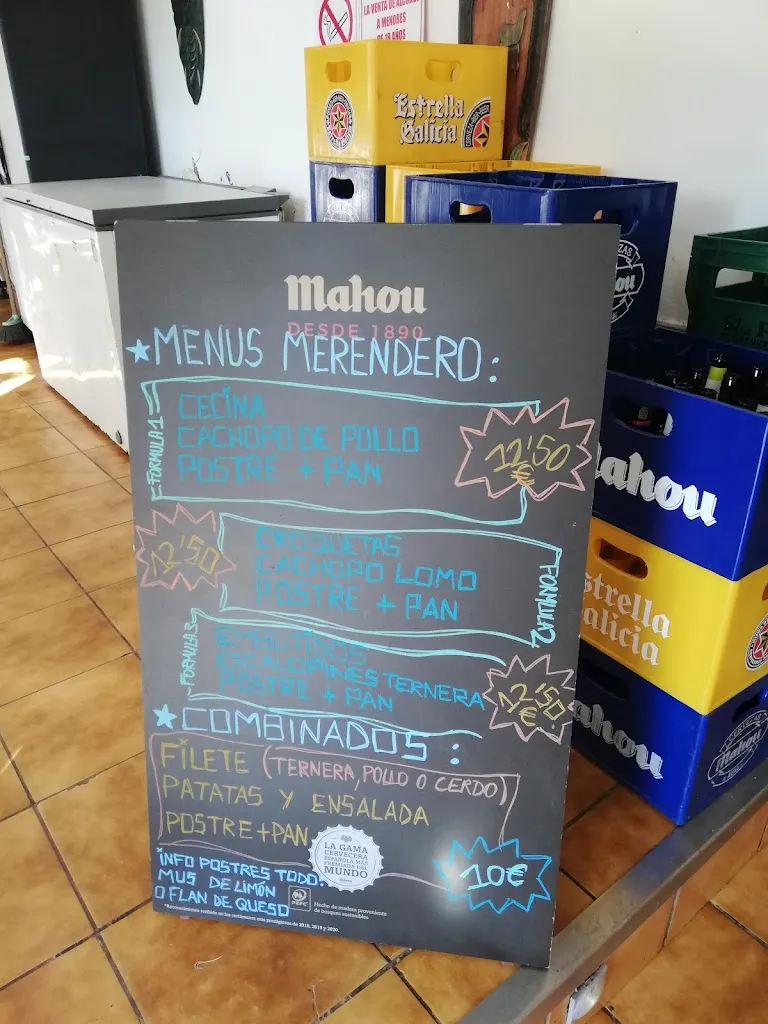 LA VENTA DE ALCOHOL
A MENORES
DE 18 AÑOS
Estrella
Galicia
Mahou
DESDE 1890
MENUS MERENDERO:
FORMULA 1
CECINA
CACHOPO DE POLLO
POSTRE + PAN
12'50
€
12'50
CROQUETAS
CACHOPO LOMO
POSTRE + PAN
FORMULA 2
FORMULA 3
EMBUTIDOS
ESCALOPINES TERNERA
POSTRE + PAN
12'50
€
COMBINADOS:
FILETE (TERNERA, POLLO O CERDO)
PATATAS Y ENSALADA
POSTRE + PAN
10€
LA GAMA
CERVECERA
ESPAÑOLA MÁS
PREMIADA DEL
MUNDO
INFO POSTRES TODO:
MUS DE LIMÓN
O FLAN DE QUESO
PEFC
Hecho de madera proveniente
de bosques sostenibles
*Reconocimiento recibido en los certámenes más prestigiosos de 2018, 2019 y 2020.
ahou
strella
alicia
ahou
Mahou